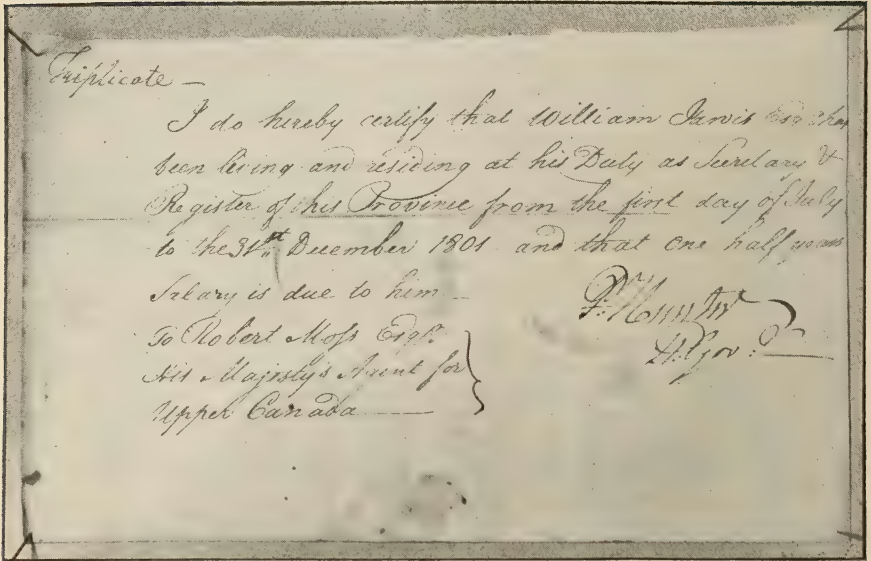 Triplicate —
I do hereby certify that William Jarvis Esqr. has
been living and residing at his Duty as Secretary &
Register of this Province from the first day of July
to the 31st. December 1801 and that one half years
Salary is due to him —
To Robert Moss Esqr.
His Majesty's Agent for
Upper Canada
P. Hunter
Lt. Gov.